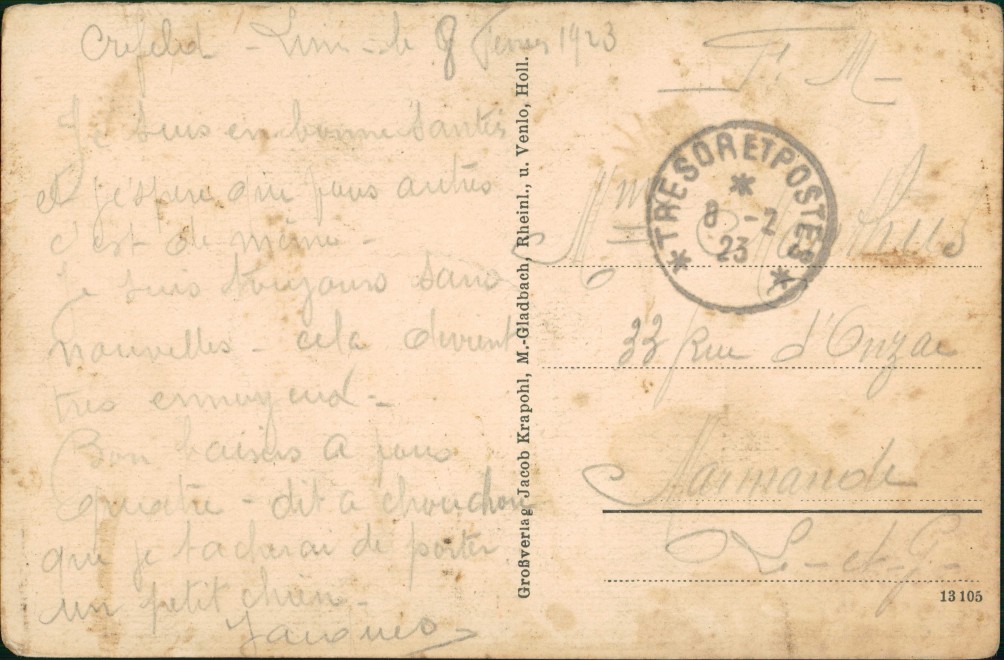 Crefeld - Linn - le 8 Février 1923
Je suis en bonne santés
et j'éspère que pous autres
c'est de même -
Je suis toujours sans
nouvelles - cela devient
très ennuyeux -
Bon baisers a pous
quatre - dit a chouchou
que je tacherai de porter
un petit chien -
Jacques
Großverlag Jacob Krapohl, M.-Gladbach, Rheinl., u. Venlo, Holl.
F. M-
* TRESOR ET POSTES *
*
8 -2
23
Mme
33 Rue d'Onzac
Marmande
L-et-G-
13105